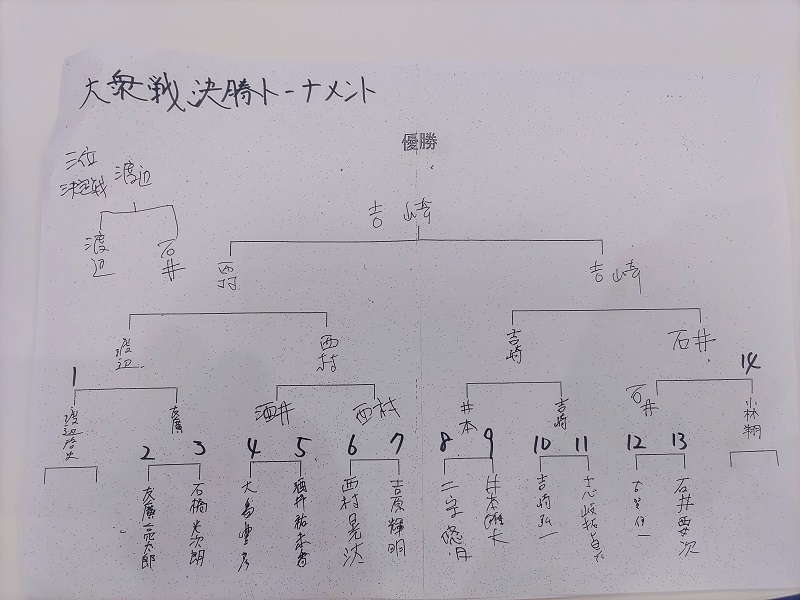 大衆戦決勝トーナメント
優勝
三位
決定戦
渡辺
吉崎
渡辺
石井
西村
吉崎
渡辺
西村
吉崎
石井
1
14
渡辺啓史
友廣
酒井
西村
井本
吉崎
石井
小林翔
2
3
4
5
6
7
8
9
10
11
12
13
友廣亮太郎
石橋
大島豊彦
酒井祐
西村晃汰
吉原輝明
二字悠月
井本雄大
吉崎弘一
石井要次